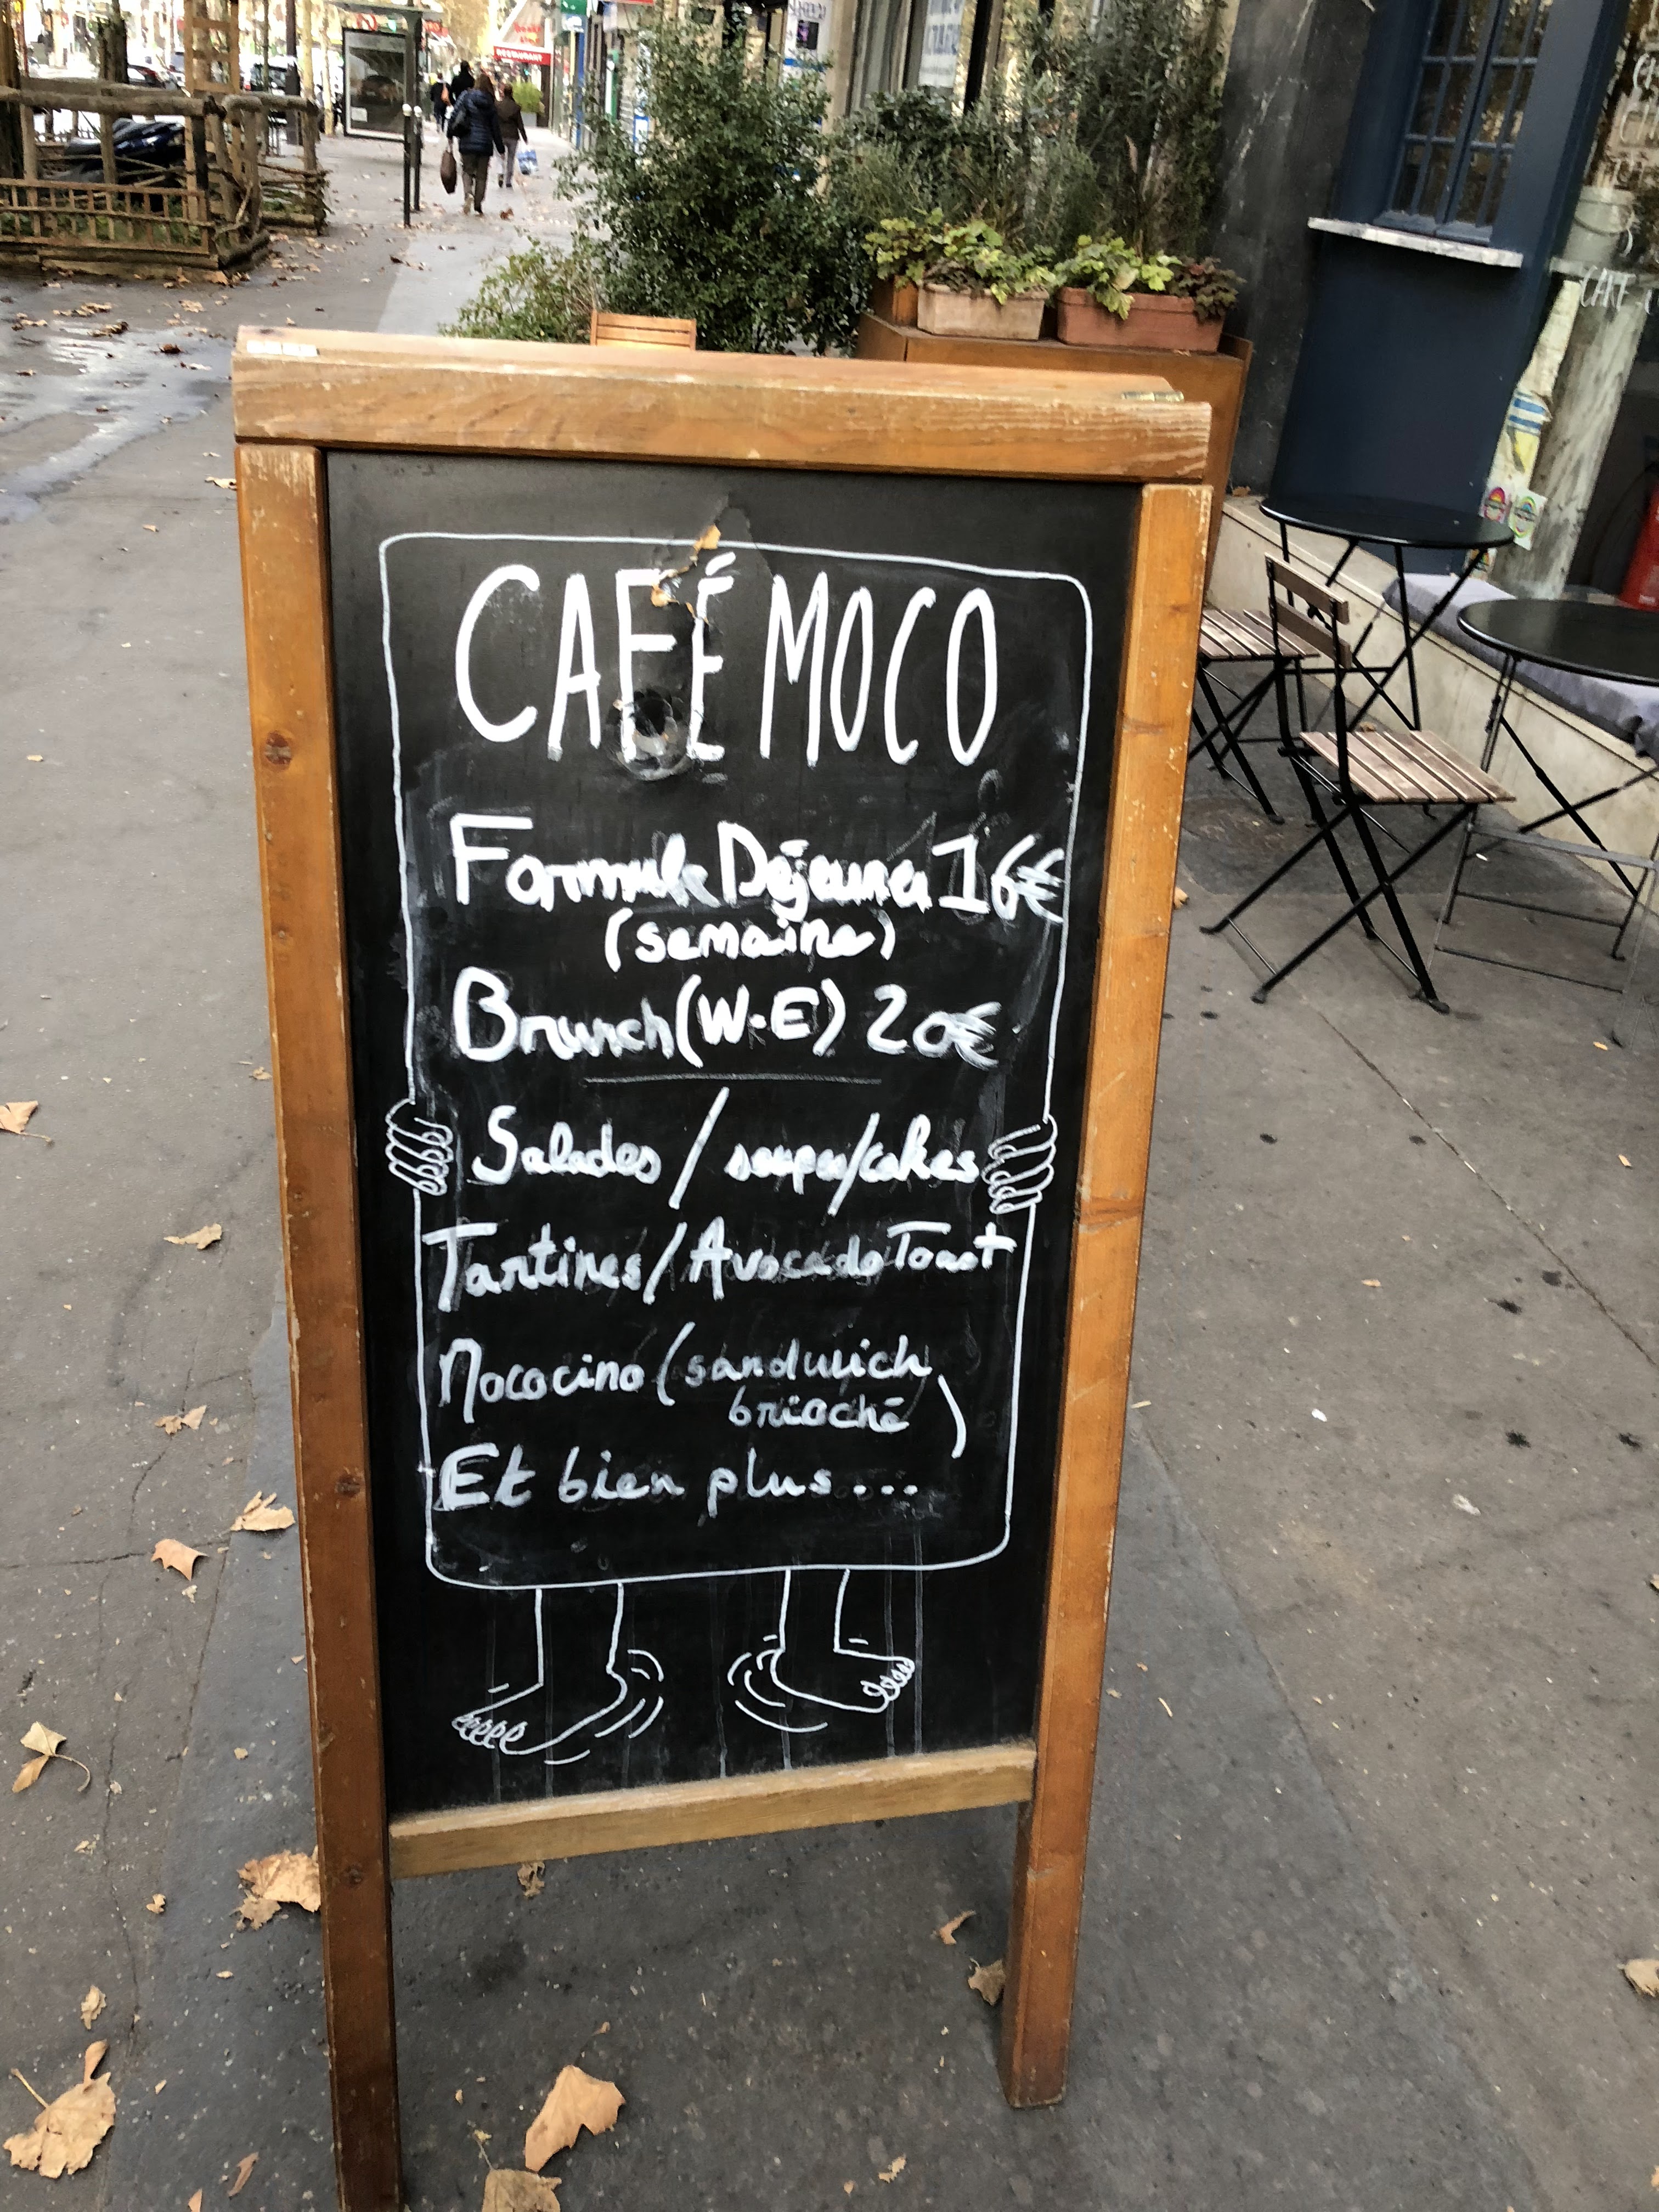 RESTAURANT
CAFÉ MOCO
Formule Déjeuner 16€
(semaine)
Brunch (W-E) 20€
Salades / soupes/cakes
Tartines / Avocado Toast
Mococino (sandwich
brioché)
Et bien plus....